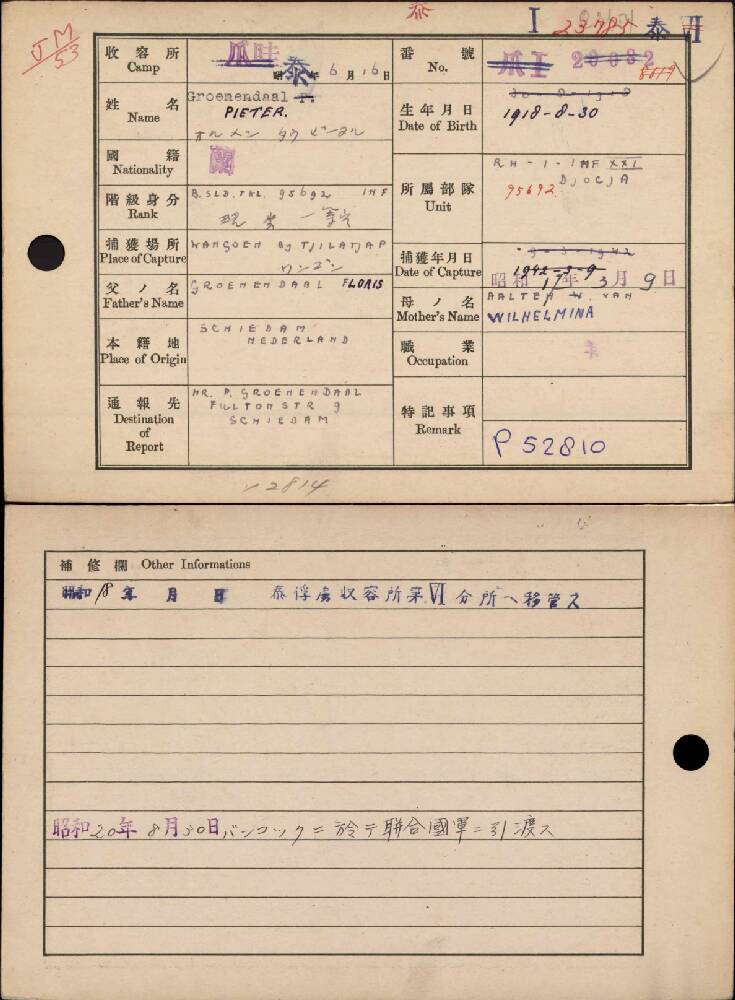 泰
I 23785 泰 VI
JM
53
收容所 Camp 爪哇 泰 昭 年 6 月 16 日
番號 No. 爪 I 20082
8619
姓名 Name Groenendaal P.
PIETER.
生年月日 Date of Birth 30-8-1918
1918-8-30
國籍 Nationality 蘭
階級身分 Rank B.SLD.TKL. 95692 INF
所屬部隊 Unit RH-I-INF XXI
DJOCJA
95692.
捕獲場所 Place of Capture WANGOEN By TJILATJAP
ワンゴン
捕獲年月日 Date of Capture 9-3-1942
1942-3-9
昭和 17年 3月 9日
父ノ名 Father's Name GROENENDAAL FLORIS
母ノ名 Mother's Name AALTEN W. VAN
WILHELMINA
本籍地 Place of Origin SCHIEDAM
NEDERLAND
職業 Occupation
通報先 Destination of Report MR. P. GROENENDAAL
FULTONSTR 9
SCHIEDAM
特記事項 Remark
P 52810
12814
補修欄 Other Informations
昭和18年 月 日 泰俘虜収容所第VI分所ヘ移管ス
昭和20年8月30日バンコックニ於テ聯合國軍ニ引渡ス